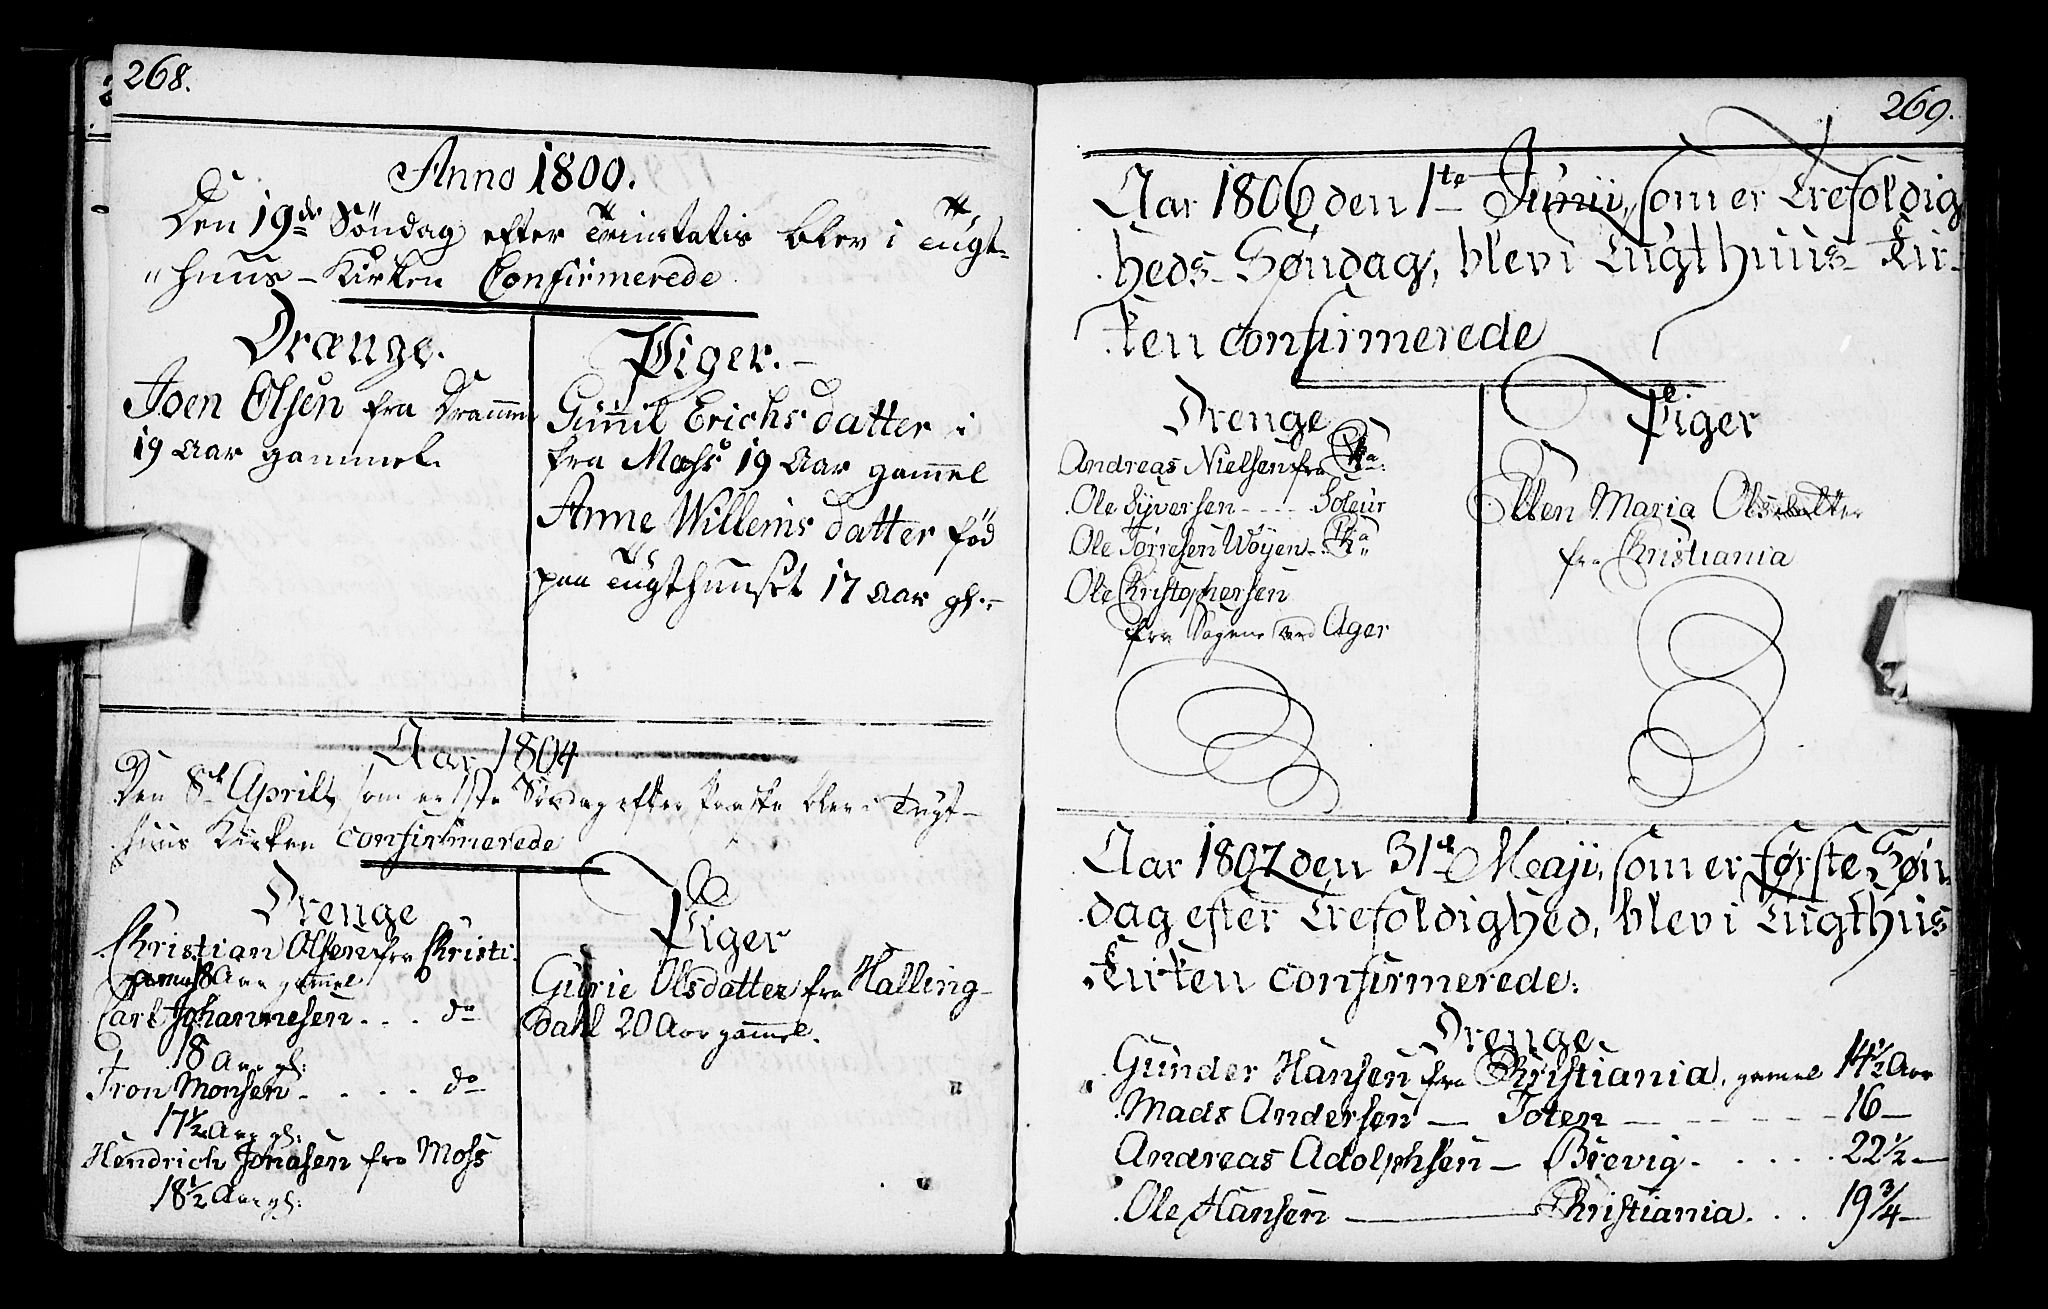 268.
Anno 1800.
Den 19de Söndag efter Trinitatis blev i Tugt-
huus-Kirken Confirmerede
Drænge.
Joen Olsen fra Drammen
19 Aar gammel.
Piger.-
Gunnil Erichs datter
fra Moss 19 Aar gam̄el
Anne Willems datter fød
paa Tugthuuset 17 Aar gl.-
Aar 1804
Den 8de Aprilis, som er 1ste Søndag efter Paaske blev i Tugt-
huus Kirken confirmerede
Drenge
Christian Olsen fra Christi-
ania 18 Aar gam̄el
Carl Johannesen . . . do
18 Aar gl:
Tron Monsen - . . . do
17½ Aar gl:
Hendrich Jonasen fra Moss
18½ Aar gl:
Piger
Gurie Olsdatter fra Halling-
dahl 20 Aar gam̄el.
269.
Aar 1806 den 1te Junii, som er Trefoldig
heds-Søndag, blev i Tugthuus-Kir-
ken confirmerede
Drenge
Andreas Nielsen fra Chra:
Ole Syversen - - - - Soleur
Ole Torresen Wøyen - Chra
Ole Christophersen
fra Sagene ved Ager
Piger
Ellen Maria Olsdatter
fra Christiania
Aar 1807 den 31de Maji, som er første Søn-
dag efter Trefoldighed, blev i Tugthus
Kirken confirmerede:
Drenge
Gunder Hansen fra Christiania, gamel 14½ Aar
Mads Andersen — Toten - - - - - 16 —
Andreas Adolphsen — Brevig . . . . . 22½ —
Ole Hansen ——— Christiania . . . 19¾ —